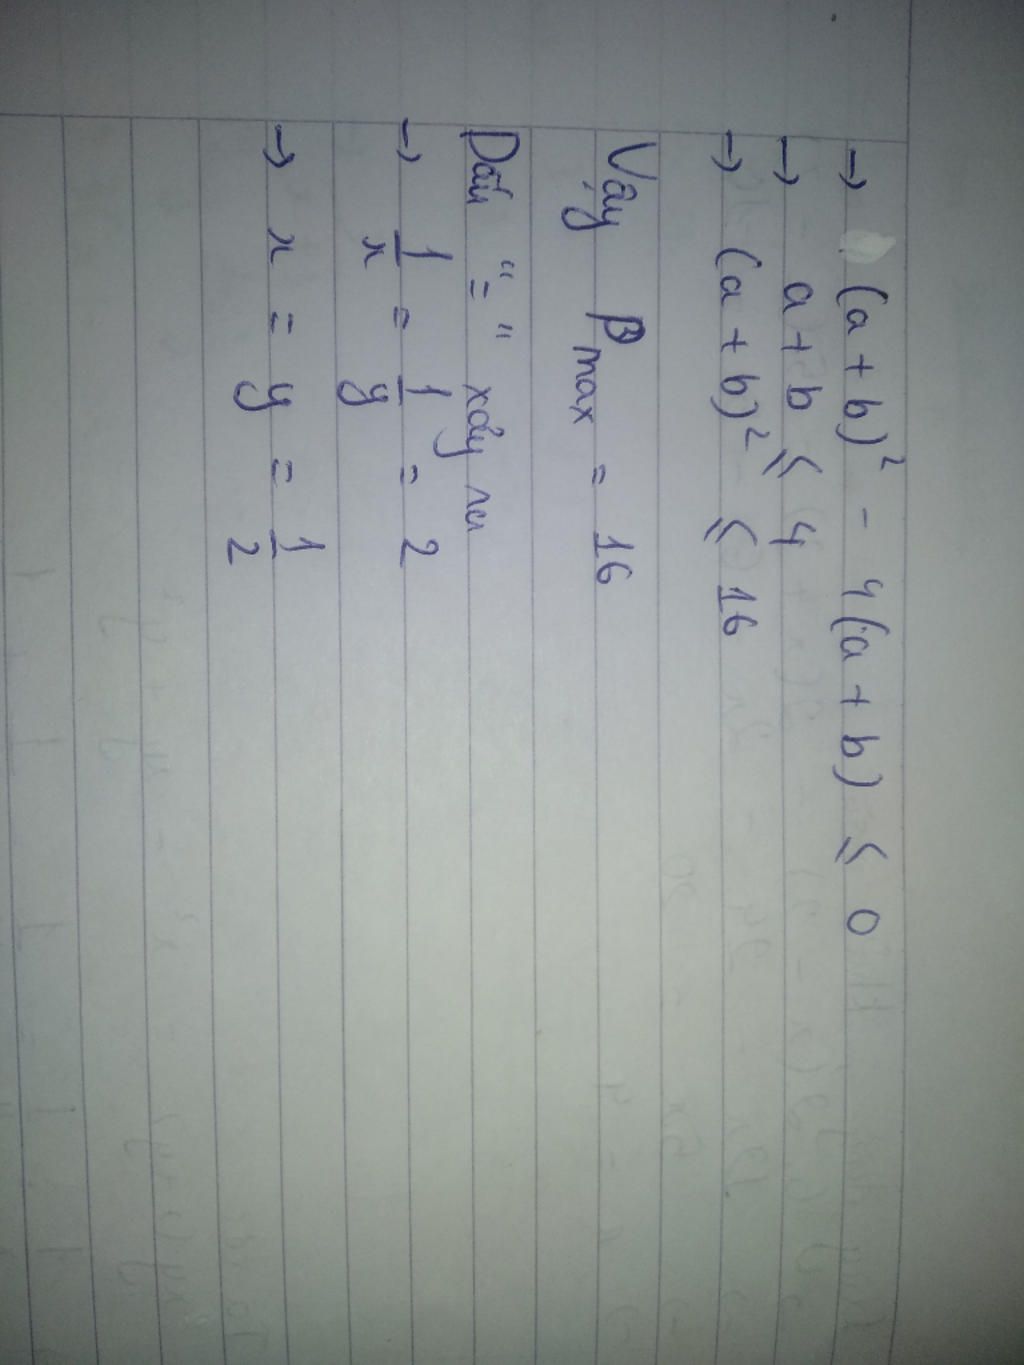 → (a + b)² - 4(a + b) ≤ 0
→ a + b ≤ 4
→ (a + b)² ≤ 16
Vậy Bmax = 16
Dấu "=" xảy ra
→ 1/x = 1/y = 2
→ x = y = 1/2